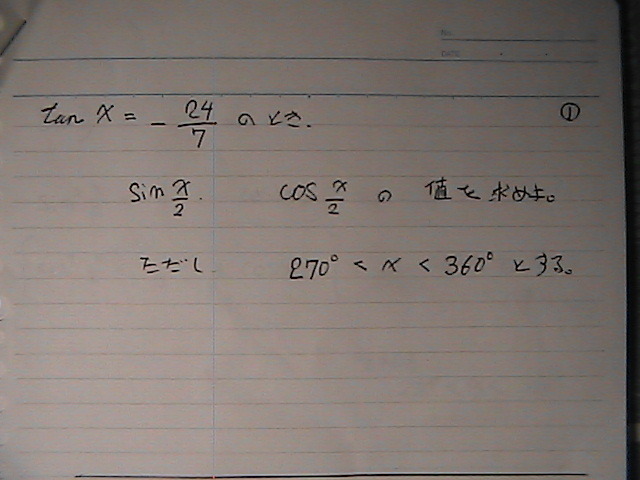 No.
DATE
tan x = - 24/7 のとき. ①
sin x/2. cos x/2 の 値を求めよ。
ただし 270° < x < 360° とする。